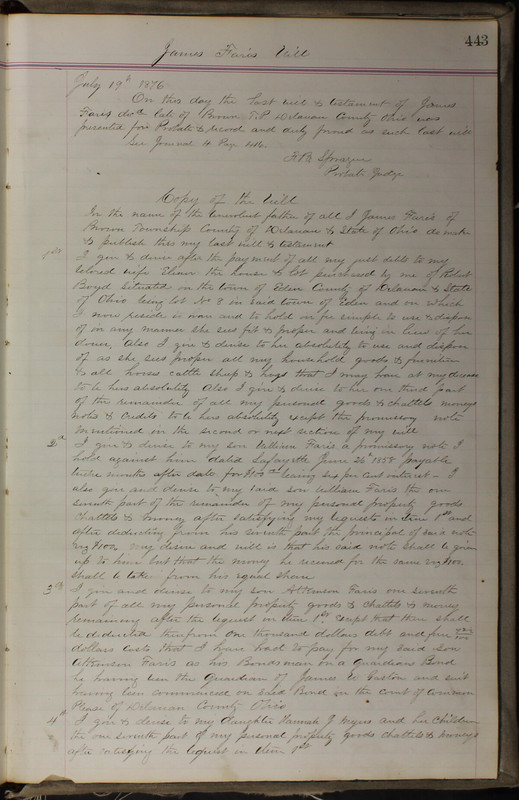 443
James Faris Will
July 19th 1876.
On this day the last will & testament of James
Faris decd late of Brown T.P. Delaware County Ohio was
presented for Probate & record and duly proved as such last will
See Journal 4. Page 486.
F B Sprague
Probate Judge
Copy of the Will
In the name of the benevolent father of all I James Faris of
Brown Township County of Delaware & State of Ohio do make
& publish this my last will & testament
1st I give & devise after the payment of all my just debts to my
beloved wife Elinor the house & lot purchased by me of Robert
Boyd situated in the town of Eden County of Delaware & State
of Ohio being lot No 8 in said town of Eden and on which
I now reside to own and to hold in fee simple to use & dispose
of in any manner she sees fit & proper and being in lieu of her
dower, Also I give & devise to her absolutely to use and dispose
of as she sees proper all my household goods & furniture
& all horses cattle sheep & hogs that I may have at my decease
to be hers absolutely Also I give & devise to her one third part
of the remainder of all my personal goods & chattels moneys
notes & credits to be hers absolutely except the promissory note
mentioned in the second or next section of my will
2nd I give & devise to my son William Faris a promissory note I
hold against him dated Lafayette June 26th 1858 payable
twelve months after date for $1100 bearing six per cent interest - I
also give and devise to my said son William Faris the one
seventh part of the remainder of my personal property goods
chattels & money after satisfying my bequests in Item 1st and
after deducting from his seventh part the principal of said note
viz $1100. my desire and will is that his said note shall be given
up to him but that the money he received for the same viz $1100.
shall be taken from his equal share
3rd I give and devise to my son Atkinson Faris one seventh
part of all my personal property goods & chattels & money
remaining after the bequest in Item 1st except that there shall
be deducted therefrom one thousand dollars debt and five
dollars costs that I have had to pay for my said son
Atkinson Faris as his Bondsman on a Guardian Bond
he having been the Guardian of James W. Gaston and suit
having been commenced on said Bond in the court of common
Pleas of Delaware County Ohio
4 I give & devise to my daughter Hannah J Myers and her children
the one seventh part of my personal property goods chattels & moneys
after satisfying the bequest in Item 1st